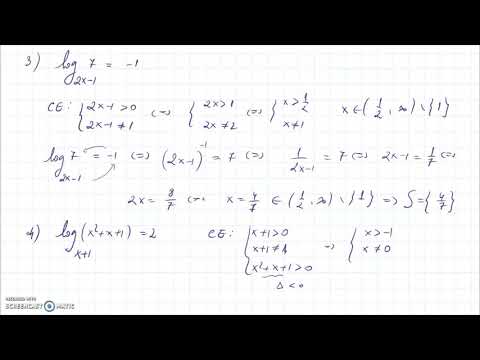 3) log_{2x-1} 7 = -1
CE: { 2x-1 > 0 ; 2x-1 ≠ 1 ⇔ { 2x > 1 ; 2x ≠ 2 ⇔ { x > 1/2 ; x ≠ 1 x ∈ (1/2, ∞) \ {1}
log_{2x-1} 7 = -1 ⇔ (2x-1)^{-1} = 7 ⇔ 1/(2x-1) = 7 ⇔ 2x-1 = 1/7 ⇔
2x = 8/7 ⇔ x = 4/7 ∈ (1/2, ∞) \ {1} ⇒ S = {4/7}
4) log_{x+1} (x²+x+1) = 2 CE: { x+1 > 0 ; x+1 ≠ 1 ; x²+x+1 > 0 ⇒ { x > -1 ; x ≠ 0
Δ < 0
RECORDED WITH
SCREENCAST MATIC